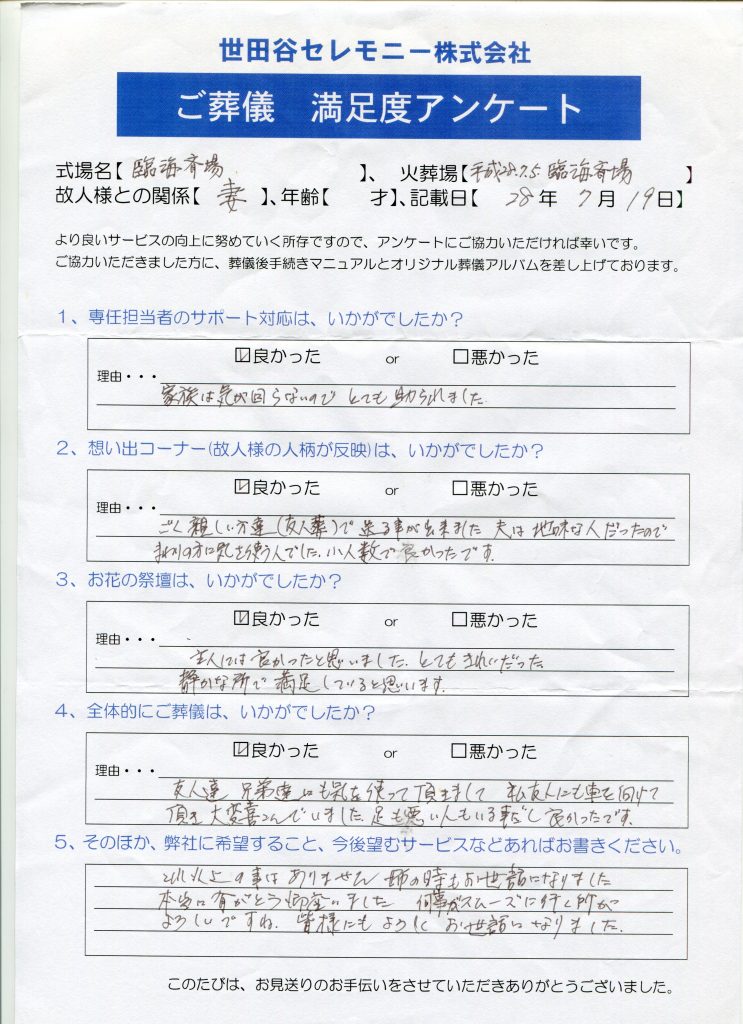 世田谷セレモニー株式会社
ご葬儀 満足度アンケート
式場名【 臨海斉場 】、 火葬場【平成28.7.5 臨海斉場 】
故人様との関係【 妻 】、年齢【 才】、記載日【 28 年 7 月 19日】
より良いサービスの向上に努めていく所存ですので、アンケートにご協力いただければ幸いです。
ご協力いただきました方に、葬儀後手続きマニュアルとオリジナル葬儀アルバムを差し上げております。
1、専任担当者のサポート対応は、いかがでしたか？
☑良かった or □悪かった
理由・・・
家族は気が回らないので とても助られました
2、想い出コーナー(故人様の人柄が反映)は、いかがでしたか？
☑良かった or □悪かった
理由・・・
ごく親しい方達(友人葬)で送る事が出来ました 夫は地味な人だったので
方に気を使う人でした。小人数で良かったです。
3、お花の祭壇は、いかがでしたか？
☑良かった or □悪かった
理由・・・
主人には良かったと思いました。とてもきれいだった
静かな所で満足していると思います。
4、全体的にご葬儀は、いかがでしたか？
☑良かった or □悪かった
理由・・・
友人達 兄弟達にも気を使って頂きまして 私友人にも車を向けて
頂き大変喜こんでいました 足も悪い人もいる事だし良かったです。
5、そのほか、弊社に希望すること、今後望むサービスなどあればお書きください。
それ以上の事はありません 姉の時もお世話になりました
本当に有がとう御座いました 何事がスムーズに行く所が
よろしいですね。皆様にもよろしく お世話になりました。
このたびは、お見送りのお手伝いをさせていただきありがとうございました。